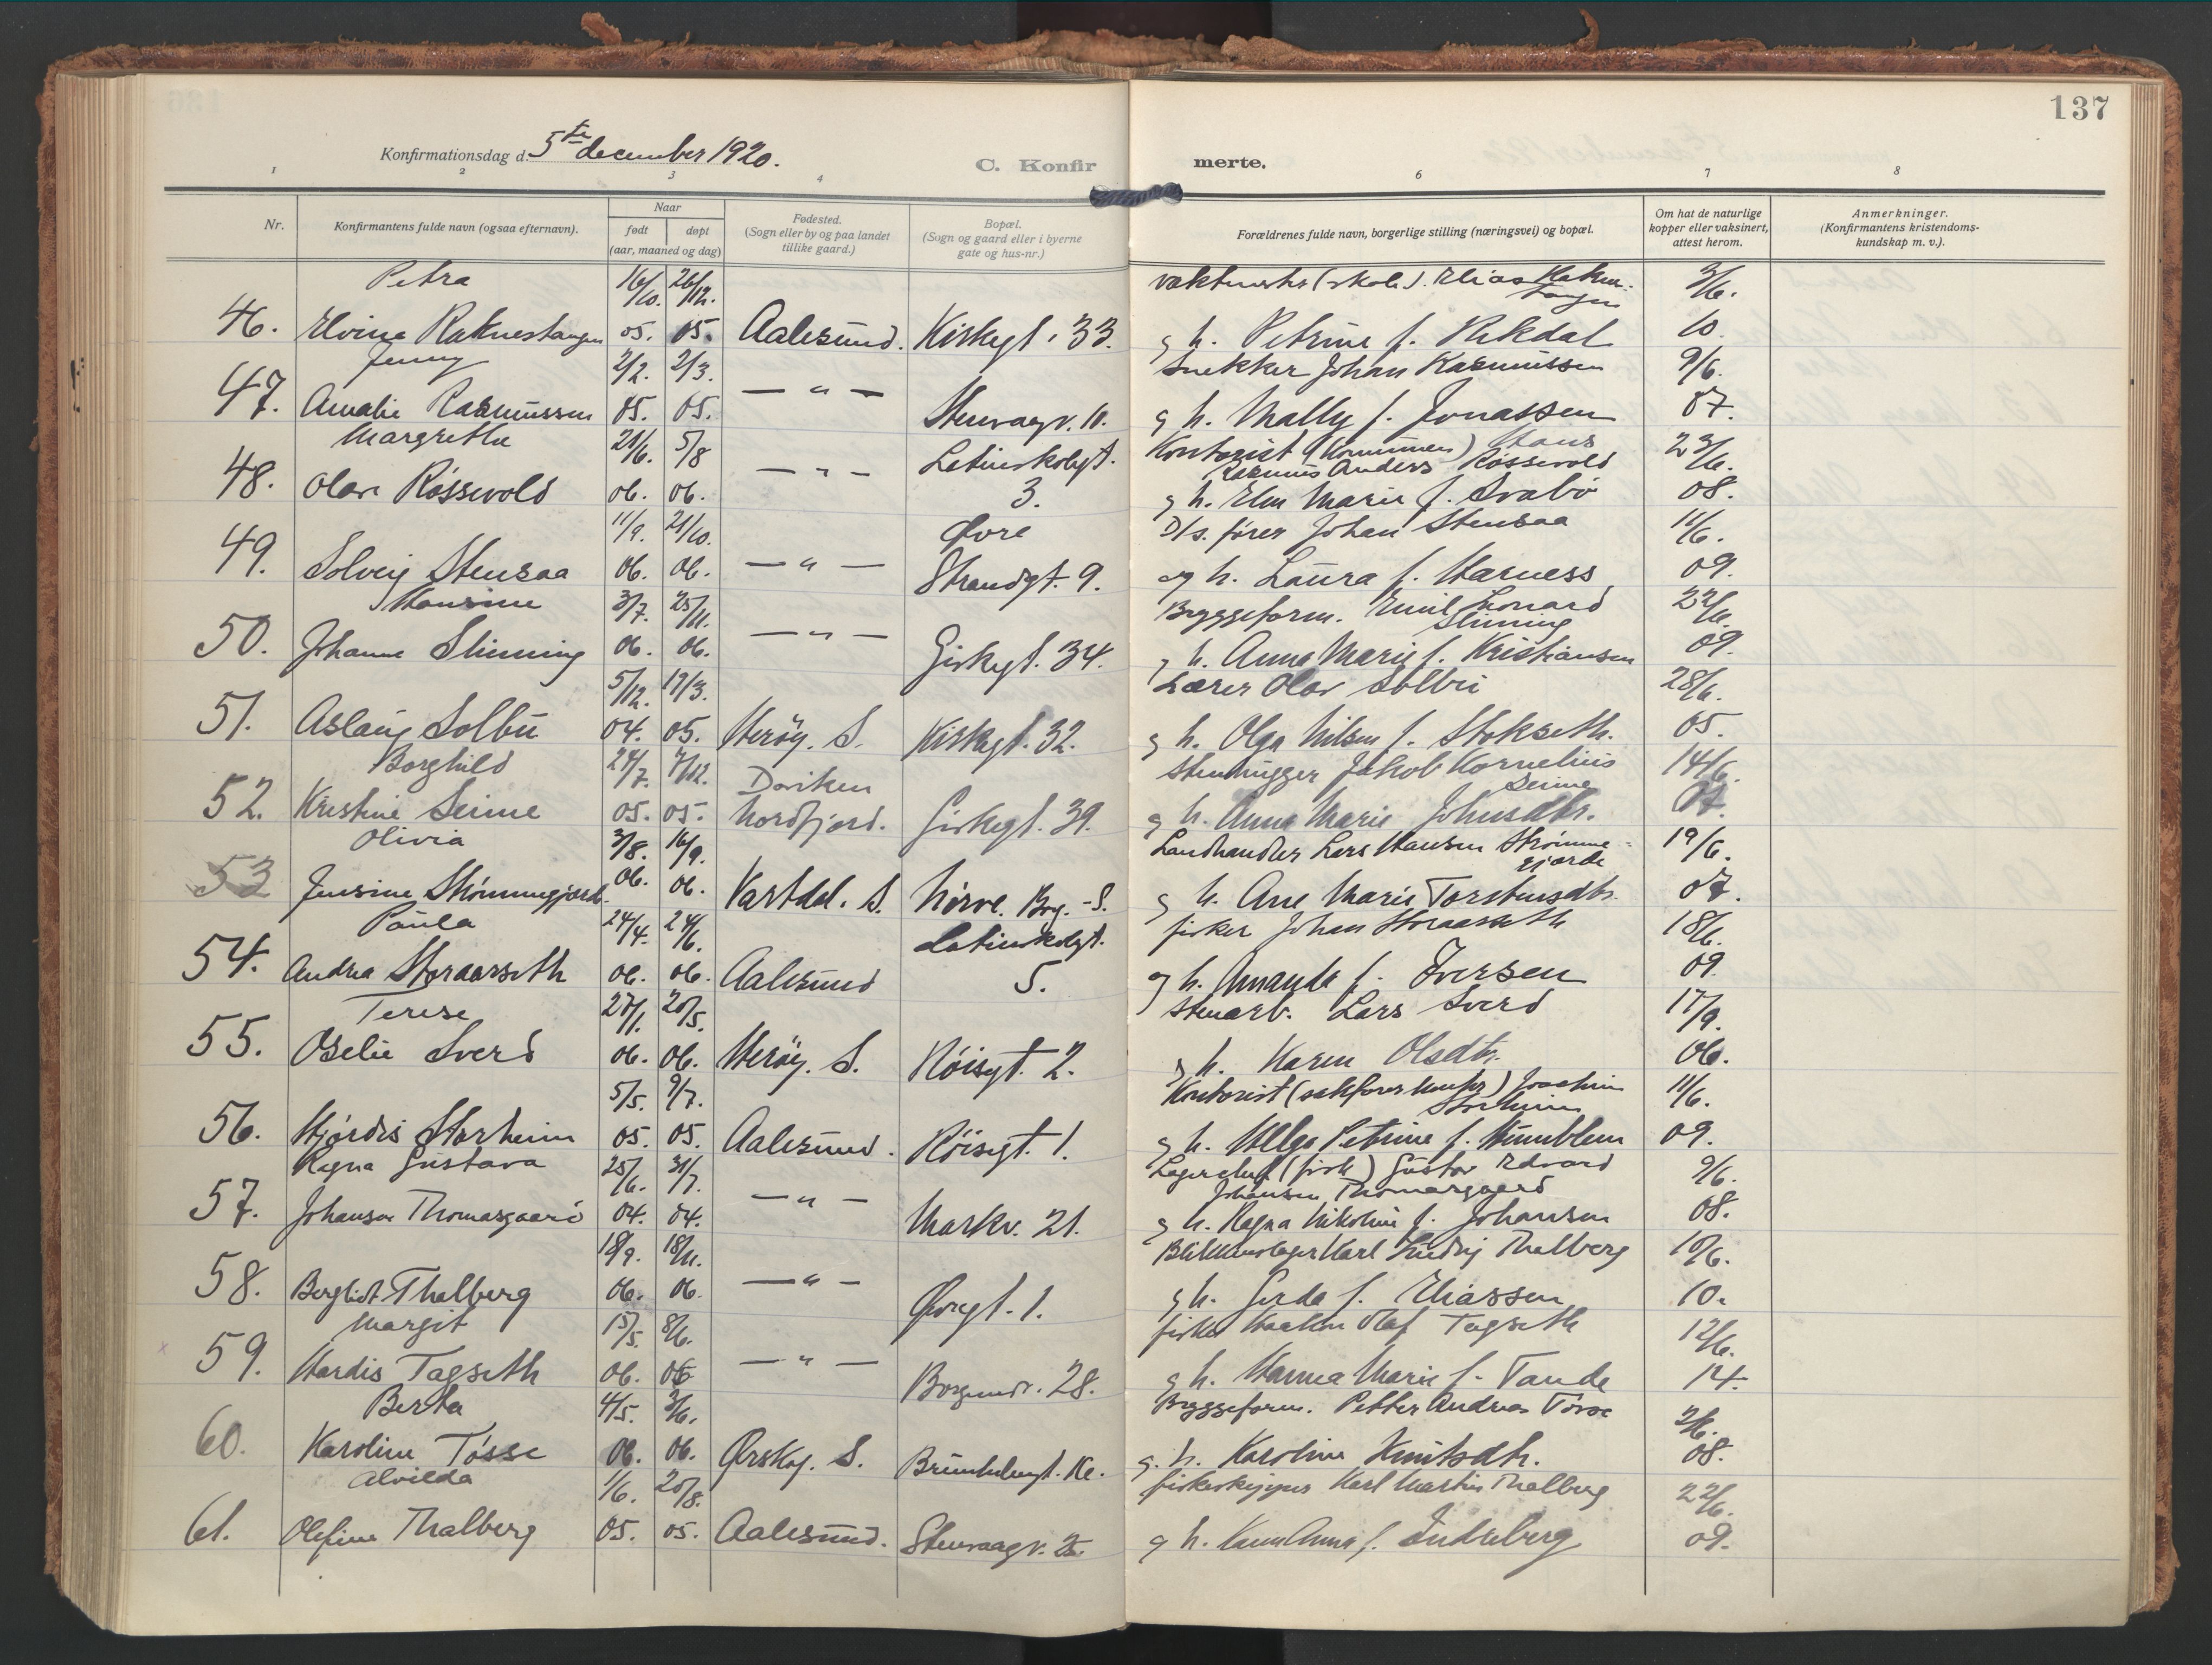 137
Konfirmationsdag d. 5te december 1920.
C. Konfir merte.
1 2 3 4 6 7 8
Nr.
Konfirmantens fulde navn (ogsaa efternavn).
Naar
født døpt
(aar, maaned og dag)
Fødested.
(Sogn eller by og paa landet
tillike gaard.)
Bopæl.
(Sogn og gaard eller i byerne
gate og hus-nr.)
Forældrenes fulde navn, borgerlige stilling (næringsvei) og bopæl.
Om hat de naturlige
kopper eller vaksinert,
attest herom.
Anmerkninger.
(Konfirmantens kristendoms-
kundskap m. v.).
Petra 16/10. 26/12. vaktmester (skole). Elias Raknes-
tangen 3/6.
46. Elvine Raknestangen 05. 05. Aalesund. Kirkegt. 33. g h. Petrine f. Rekdal 10.
Jenny 2/2. 2/3. Snekker Johan Rasmussen 9/6.
47. Amalie Rasmussen 05. 05. — " — Stenvaagv. 10. g h. Mally f. Jonassen 07.
Margrethe 21/6. 5/8 Latinskolegt. Kontorist (Kommunen) Hans 23/6.
Rasmus Anders Røssevold
48. Olave Røssevold 06. 06. — " — 3. g h. Elen Marie f. Svabø 08.
11/9. 21/10. Øvre D/s. fører Johan Stensaa 11/6.
49. Solveig Stensaa 06. 06. — " — Strandgt. 9. og h. Laura f. Warness 09.
Hansine 3/7. 25/11. Bryggeform. Emil Leonard 22/6.
Slinning
50. Johanne Slinning 06. 06. — " — Giskegt. 34. g h. Anna Marie f. Kristiansen 09.
5/12. 19/3. Lærer Olav Solbu 28/6.
51. Aslaug Solbu 04. 05. Herøy. S. Kirkegt. 32. g h. Olga Nilsen f. Stokseth. 05.
Borghild 24/7. 7/12. Daviken Stenhugger Jakob Kornelius 14/6.
Seime
52. Kristine Seime 05. 05. Nordfjord. Giskegt. 39. g h. Anna Marie Johnsdtr. 07.
Olivia 3/8. 16/9. Landhandler Lars Hansen Strømme-
gjerde 19/6.
53 Jensine Strømmegjerde. 06. 06. Vartdal. S. Nørve. Borg.-S. g h. Ane Marie Torstensdtr. 07.
Paula 24/4. 24/6. Latinskolegt. fisker Johan Storaaseth 18/6.
54. Andrea Storaaseth 06. 06. Aalesund 5. g h. Amanda f. Iversen 09.
Terese 27/1. 20/5. Stenarb. Lars Sverd 17/9.
55. Oselie Sverd 06. 06. Herøy. S. Røisegt. 2. g h. Karen Olsdtr. 06.
5/5. 9/7. Kontorist (sakfører) Joachim 11/6.
Storheim
56. Hjørdis Storheim 05. 05. Aalesund. Røisegt. 1. g h. Helga Petrine f. Humblem 09.
Ragna Gustava 25/6. 31/7. Lagerchef (fisk) Gustav Edvard 9/6.
Johansen Thomasgaard
57. Johansen Thomasgaard 04. 04. — " — Markv. 21. g h. Ragna Nikoline f. Johansen 08.
18/9. 18/11. Blikkenslager Karl Fredrig Thalberg 10/6.
58. Bergliot Thalberg 06. 06. — " — Øvregt. 1. g h. Gerda f. Eliassen 10.
Margit 15/5. 8/6. fisker Haakon Olaf Tagseth 12/6.
59. Hardis Tagseth 06. 06 — " — Borgundv. 28. g h. Hanna Marie f. Tande 14.
Berta 4/5. 3/6. Bryggeform. Petter Andreas Tøsse 2/6.
60. Karoline Tøsse 06. 06. Ørskog. S. g. h. Karoline Knutsdtr. 08.
Alvilda 1/6. 20/8. fiskeskipper Karl Martin Thalberg 22/6.
61. Olefine Thalberg 05. 05. Aalesund. Stenvaagv. g h. Karen Anna f. Indreberg 09.